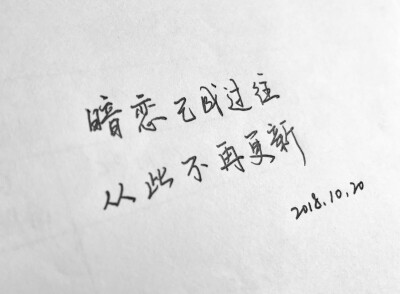 暗恋已成过往
从此不再更新
2018.10.20